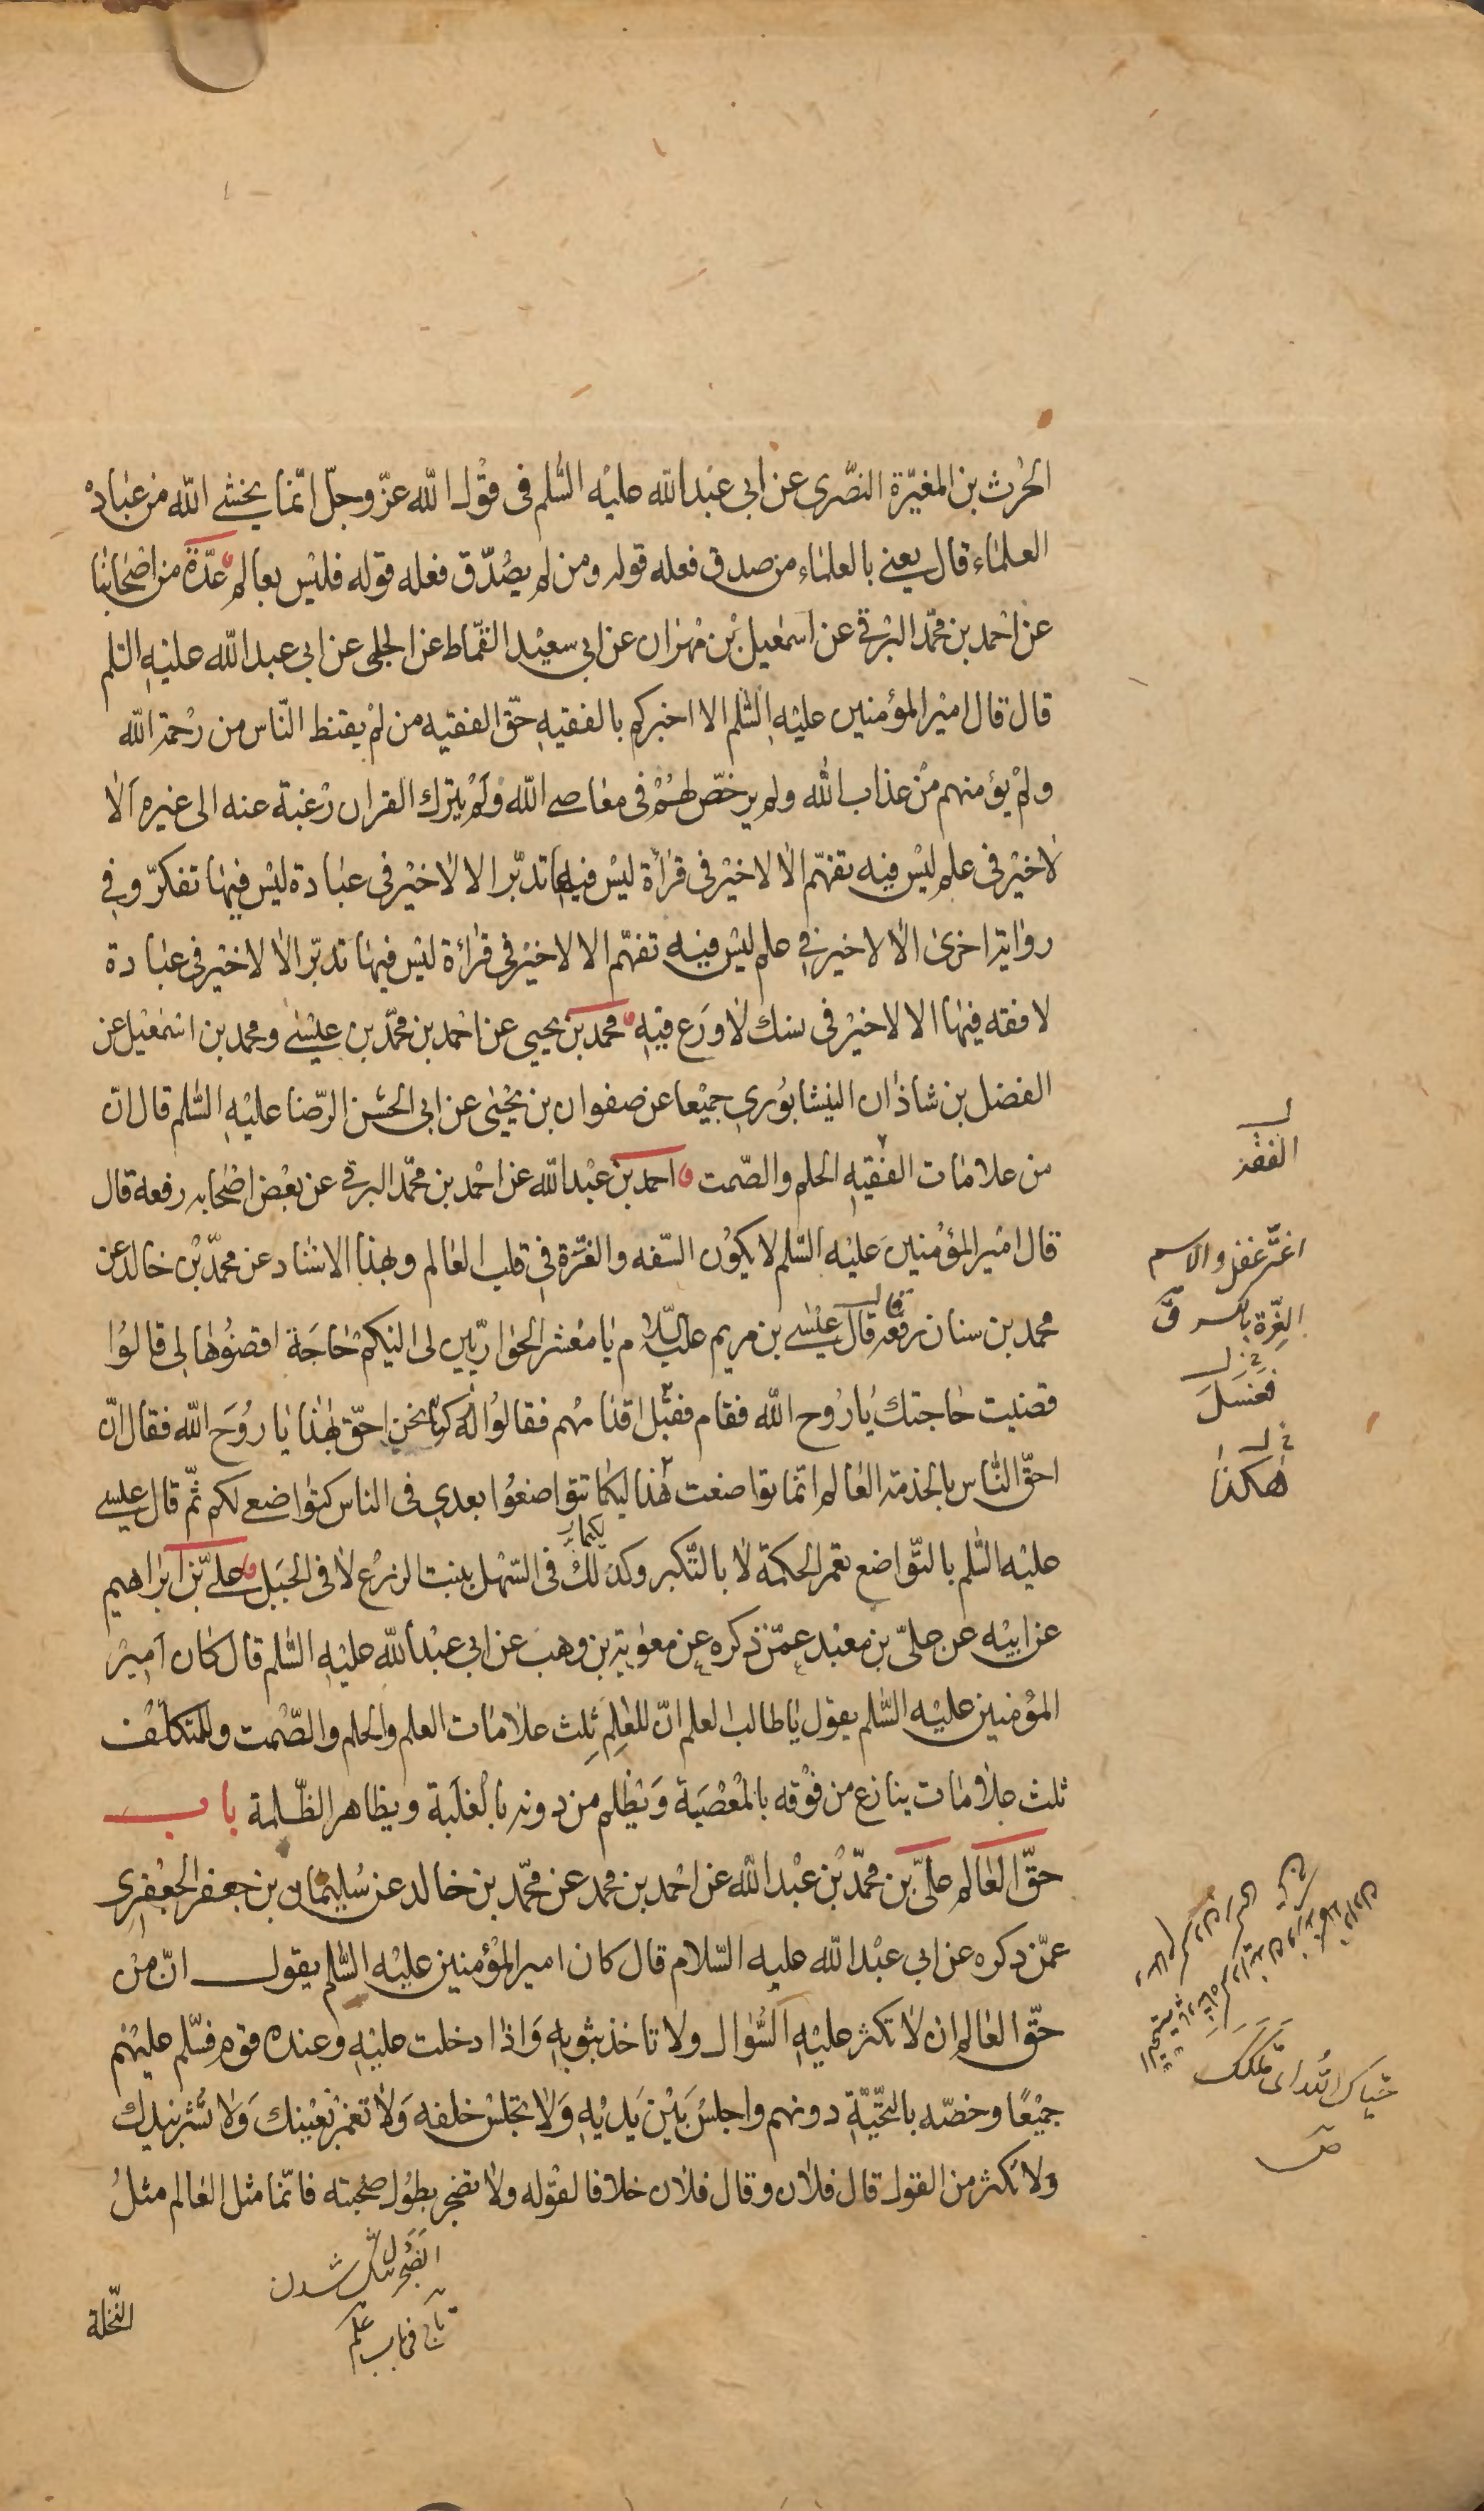 الحرث بن المغيرة النصرى عن ابى عبد الله عليه السّلم فى قول الله عزّ وجلّ انّما يخشى الله من عباده
العلماء قال يعنى بالعلماء من صدق فعله قوله ومن لم يصدّق فعله قوله فليس بعالم عدّة من اصحابنا
عن احمد بن محمّد البرقى عن اسمعيل بن مهران عن ابى سعيد القمّاط عن الحلبى عن ابى عبد الله عليه السلم
قال قال امير المؤمنين عليه السّلم الا اخبركم بالفقيه حقّ الفقيه من لم يقنط النّاس من رحمة الله
ولم يؤمنهم من عذاب الله ولم يرخّص لهم فى معاصى الله ولم يترك القران رغبة عنه الى غيره الا
لا خير فى علم ليس فيه تفهّم الا لا خير فى قراءة ليس فيها تدبّر الا لا خير فى عبادة ليس فيها تفكّر وفى
رواية اخرى الا لا خير فى علم ليس فيه تفهّم الا لا خير فى قراءة ليس فيها تدبّر الا لا خير فى عبادة
لا فقه فيها الا لا خير فى نسك لا ورع فيه محمد بن يحيى عن احمد بن محمّد بن عيسى ومحمد بن اسمعيل عن
الفضل بن شاذان النيشابورى جميعا عن صفوان بن يحيى عن ابى الحسن الرّضا عليه السّلم قال انّ
من علامات الفقيه الحلم والصّمت احمد بن عبد الله عن احمد بن محمّد البرقى عن بعض اصحابه رفعه قال
قال امير المؤمنين عليه السّلم لا يكون السّفه والغرّة فى قلب العالم وبهذا الاسناد عن محمّد بن خالد عن
محمد بن سنان رفعه قال قال عيسى بن مريم عليه السلام يا معشر الحواريّين لى اليكم حاجة اقضوها لى قالوا
قضيت حاجتك يا روح الله فقام فقبّل اقدامهم فقالوا له كنّا نحن احقّ بهذا يا روح الله فقال انّ
احقّ النّاس بالخدمة العالم انّما تواضعت هذا ليكما تتواضعوا بعدى فى الناس كتواضعى لكم ثمّ قال عيسى
عليه السّلم بالتّواضع تعمر الحكمة لا بالتّكبر وكذلك فى السّهل ينبت الزرع لا فى الجبل علىّ بن ابراهيم
عن ابيه عن علىّ بن معبد عمّن ذكره عن معوية بن وهب عن ابى عبد الله عليه السّلم قال كان امير
المؤمنين عليه السّلم يقول يا طالب العلم انّ للعالم ثلث علامات العلم والحلم والصّمت وللمتكلّف
ثلث علامات ينازع من فوقه بالمعصية ويظلم من دونه بالغلبة ويظاهر الظّلمة باب
حقّ العالم علىّ بن محمّد بن عبد الله عن احمد بن محمد عن محمّد بن خالد عن سليمان بن جعفر الجعفرى
عمّن ذكره عن ابى عبد الله عليه السّلام قال كان امير المؤمنين عليه السّلم يقول انّ من
حقّ العالم ان لا تكثر عليه السّؤال ولا تاخذ بثوبه واذا دخلت عليه وعنده قوم فسلّم عليهم
جميعًا وخصّه بالتّحيّة دونهم واجلس بين يديه ولا تجلس خلفه ولا تغمز بعينك ولا تشر بيدك
ولا تكثر من القول قال فلان وقال فلان خلافا لقوله ولا تضجر بطول صحبته فانّما مثل العالم مثل
النّخلة
الفقه
اغترّ غفل والاسم
الغرّة بالكسر ق
فغسل
هكذا
حيّاك الله اى ملّكك
ص
الضجر دل تنگ شدن